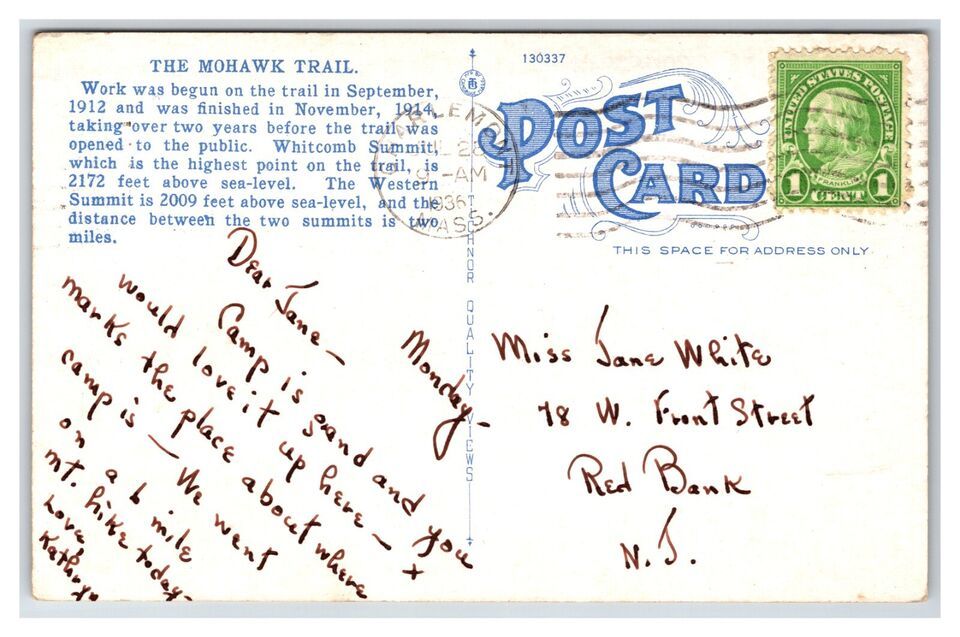 THE MOHAWK TRAIL.
Work was begun on the trail in September,
1912 and was finished in November, 1914,
taking over two years before the trail was
opened to the public. Whitcomb Summit,
which is the highest point on the trail, is
2172 feet above sea-level. The Western
Summit is 2009 feet above sea-level, and the
distance between the two summits is two
miles.
Monday-
Dear Jane-
Camp is grand and you
would love it up here - +
marks the place about where
camp is - We went
on a 6 mile
mt. hike today-
Love,
Kathryn
TECHNOR QUALITY VIEWS
130337
POST
CARD
THIS SPACE FOR ADDRESS ONLY
9-AM
1936
MASS.
UNITED STATES POSTAGE
FRANKLIN
1 CENT 1
Miss Jane White
78 W. Front Street
Red Bank
N. J.